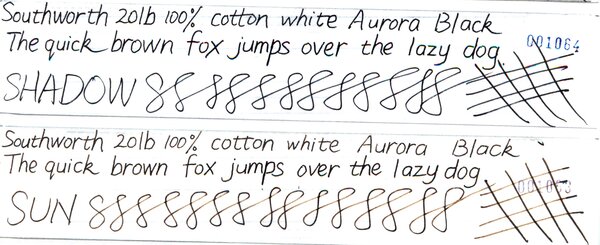 Southworth 20lb 100% cotton white Aurora Black
The quick brown fox jumps over the lazy dog. 001064
SHADOW
Southworth 20lb 100% cotton white Aurora Black
The quick brown fox jumps over the lazy dog
001063
SUN